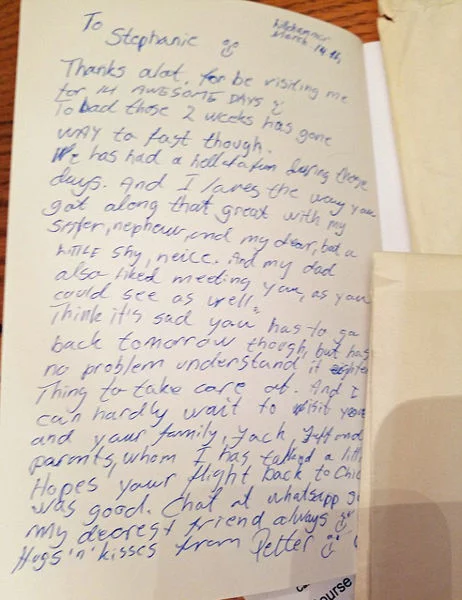 To
Stephanie
March 14
Thanks alot. for be visiting me
for 14 AWESOME DAYS
To bad those 2 weeks has gone
WAY to fast though.
We has had a hellofafun during these
days. And I loves the way you
got along that great with my
sister, nephew, and my dear, but a
LITTLE shy, neice. And my dad
also liked meeting you, as you
could see as well.
Think it's sad you has to go
back tomorrow though, but has
no problem understand it
Thing to take care of. And I
can hardly wait to visit you
and your family, Jeff and
parents, whom I has talked a
Hopes your flight back to Chic
was good. Chat at whatsapp
my dearest friend always
Hugs 'n' kisses from Petter
ourse